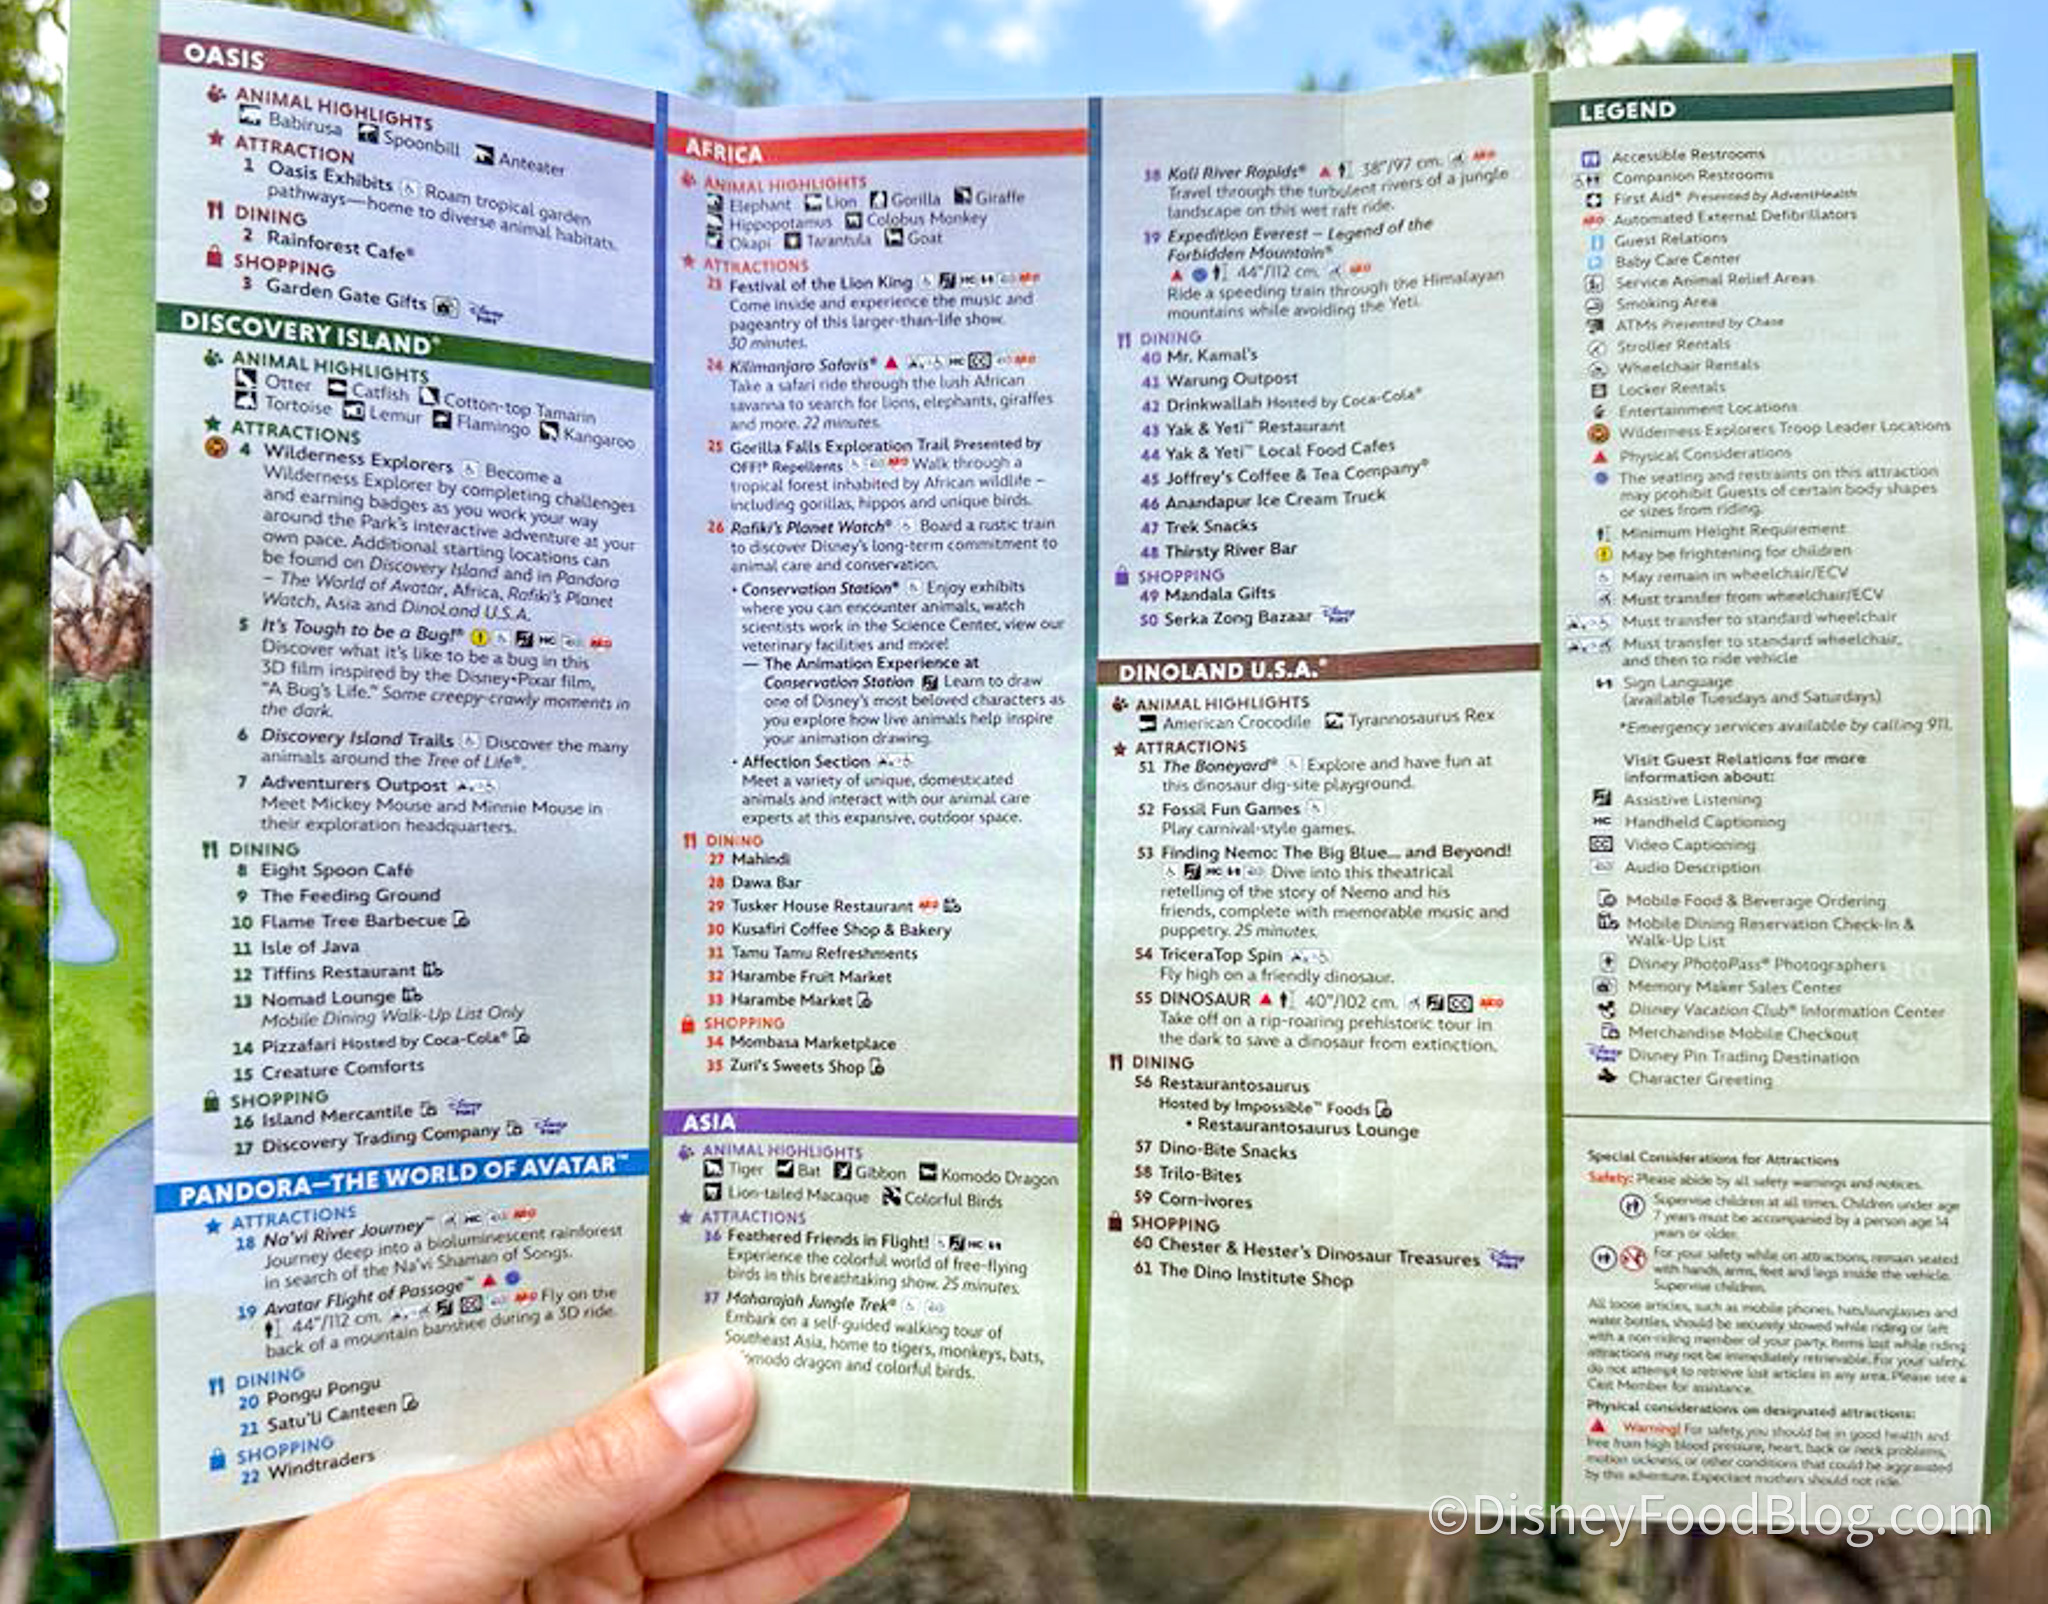 OASIS
ANIMAL HIGHLIGHTS
Babirusa Spoonbill Anteater
ATTRACTION
1 Oasis Exhibits Roam tropical garden
pathways—home to diverse animal habitats.
DINING
2 Rainforest Cafe®
SHOPPING
3 Garden Gate Gifts Disney PINS
DISCOVERY ISLAND®
ANIMAL HIGHLIGHTS
Otter Catfish Cotton-top Tamarin
Tortoise Lemur Flamingo Kangaroo
ATTRACTIONS
4 Wilderness Explorers Become a
Wilderness Explorer by completing challenges
and earning badges as you work your way
around the Park's interactive adventure at your
own pace. Additional starting locations can
be found on Discovery Island and in Pandora
– The World of Avatar, Africa, Rafiki's Planet
Watch, Asia and DinoLand U.S.A.
5 It's Tough to be a Bug!® HC AED
Discover what it's like to be a bug in this
3D film inspired by the Disney•Pixar film,
"A Bug's Life." Some creepy-crawly moments in
the dark.
6 Discovery Island Trails Discover the many
animals around the Tree of Life®.
7 Adventurers Outpost
Meet Mickey Mouse and Minnie Mouse in
their exploration headquarters.
DINING
8 Eight Spoon Café
9 The Feeding Ground
10 Flame Tree Barbecue
11 Isle of Java
12 Tiffins Restaurant
13 Nomad Lounge
Mobile Dining Walk-Up List Only
14 Pizzafari Hosted by Coca-Cola®
15 Creature Comforts
SHOPPING
16 Island Mercantile Disney PINS
17 Discovery Trading Company Disney PINS
PANDORA—THE WORLD OF AVATAR™
ATTRACTIONS
18 Na'vi River Journey™ HC AED
Journey deep into a bioluminescent rainforest
in search of the Na'vi Shaman of Songs.
19 Avatar Flight of Passage™
44"/112 cm. CC AED Fly on the
back of a mountain banshee during a 3D ride.
DINING
20 Pongu Pongu
21 Satu'li Canteen
SHOPPING
22 Windtraders
AFRICA
ANIMAL HIGHLIGHTS
Elephant Lion Gorilla Giraffe
Hippopotamus Colobus Monkey
Okapi Tarantula Goat
ATTRACTIONS
23 Festival of the Lion King HC AED
Come inside and experience the music and
pageantry of this larger-than-life show.
30 minutes.
24 Kilimanjaro Safaris® HC CC AED
Take a safari ride through the lush African
savanna to search for lions, elephants, giraffes
and more. 22 minutes.
25 Gorilla Falls Exploration Trail Presented by
OFF!® Repellents AED Walk through a
tropical forest inhabited by African wildlife –
including gorillas, hippos and unique birds.
26 Rafiki's Planet Watch® Board a rustic train
to discover Disney's long-term commitment to
animal care and conservation.
• Conservation Station® Enjoy exhibits
where you can encounter animals, watch
scientists work in the Science Center, view our
veterinary facilities and more!
— The Animation Experience at
Conservation Station Learn to draw
one of Disney's most beloved characters as
you explore how live animals help inspire
your animation drawing.
• Affection Section
Meet a variety of unique, domesticated
animals and interact with our animal care
experts at this expansive, outdoor space.
DINING
27 Mahindi
28 Dawa Bar
29 Tusker House Restaurant AED
30 Kusafiri Coffee Shop & Bakery
31 Tamu Tamu Refreshments
32 Harambe Fruit Market
33 Harambe Market
SHOPPING
34 Mombasa Marketplace
35 Zuri's Sweets Shop
ASIA
ANIMAL HIGHLIGHTS
Tiger Bat Gibbon Komodo Dragon
Lion-tailed Macaque Colorful Birds
ATTRACTIONS
36 Feathered Friends in Flight! HC
Experience the colorful world of free-flying
birds in this breathtaking show. 25 minutes.
37 Maharajah Jungle Trek®
Embark on a self-guided walking tour of
Southeast Asia, home to tigers, monkeys, bats,
Komodo dragon and colorful birds.
38 Kali River Rapids® 38"/97 cm. AED
Travel through the turbulent rivers of a jungle
landscape on this wet raft ride.
39 Expedition Everest – Legend of the
Forbidden Mountain®
44"/112 cm. AED
Ride a speeding train through the Himalayan
mountains while avoiding the Yeti.
DINING
40 Mr. Kamal's
41 Warung Outpost
42 Drinkwallah Hosted by Coca-Cola®
43 Yak & Yeti™ Restaurant
44 Yak & Yeti™ Local Food Cafes
45 Joffrey's Coffee & Tea Company®
46 Anandapur Ice Cream Truck
47 Trek Snacks
48 Thirsty River Bar
SHOPPING
49 Mandala Gifts
50 Serka Zong Bazaar Disney PINS
DINOLAND U.S.A.®
ANIMAL HIGHLIGHTS
American Crocodile Tyrannosaurus Rex
ATTRACTIONS
51 The Boneyard® Explore and have fun at
this dinosaur dig-site playground.
52 Fossil Fun Games
Play carnival-style games.
53 Finding Nemo: The Big Blue... and Beyond!
HC Dive into this theatrical
retelling of the story of Nemo and his
friends, complete with memorable music and
puppetry. 25 minutes.
54 TriceraTop Spin
Fly high on a friendly dinosaur.
55 DINOSAUR 40"/102 cm. CC AED
Take off on a rip-roaring prehistoric tour in
the dark to save a dinosaur from extinction.
DINING
56 Restaurantosaurus
Hosted by Impossible™ Foods
• Restaurantosaurus Lounge
57 Dino-Bite Snacks
58 Trilo-Bites
59 Corn-ivores
SHOPPING
60 Chester & Hester's Dinosaur Treasures Disney PINS
61 The Dino Institute Shop
LEGEND
Accessible Restrooms
Companion Restrooms
First Aid* Presented by AdventHealth
AED Automated External Defibrillators
Guest Relations
Baby Care Center
Service Animal Relief Areas
Smoking Area
ATMs Presented by Chase
Stroller Rentals
Wheelchair Rentals
Locker Rentals
Entertainment Locations
Wilderness Explorers Troop Leader Locations
Physical Considerations
The seating and restraints on this attraction
may prohibit Guests of certain body shapes
or sizes from riding.
Minimum Height Requirement
May be frightening for children
May remain in wheelchair/ECV
Must transfer from wheelchair/ECV
Must transfer to standard wheelchair
Must transfer to standard wheelchair,
and then to ride vehicle
Sign Language
(available Tuesdays and Saturdays)
*Emergency services available by calling 911.
Visit Guest Relations for more
information about:
Assistive Listening
HC Handheld Captioning
CC Video Captioning
Audio Description
Mobile Food & Beverage Ordering
Mobile Dining Reservation Check-In &
Walk-Up List
Disney PhotoPass® Photographers
Memory Maker Sales Center
Disney Vacation Club® Information Center
Merchandise Mobile Checkout
Disney PINS Disney Pin Trading Destination
Character Greeting
Special Considerations for Attractions
Safety: Please abide by all safety warnings and notices.
Supervise children at all times. Children under age
7 years must be accompanied by a person age 14
years or older.
For your safety while on attractions, remain seated
with hands, arms, feet and legs inside the vehicle.
Supervise children.
All loose articles, such as mobile phones, hats/sunglasses and
water bottles, should be securely stowed while riding or left
with a non-riding member of your party. Items lost while riding
attractions may not be immediately retrievable. For your safety,
do not attempt to retrieve lost articles in any area. Please see a
Cast Member for assistance.
Physical considerations on designated attractions:
Warning! For safety, you should be in good health and
free from high blood pressure, heart, back or neck problems,
motion sickness, or other conditions that could be aggravated
by this adventure. Expectant mothers should not ride.
©DisneyFoodBlog.com